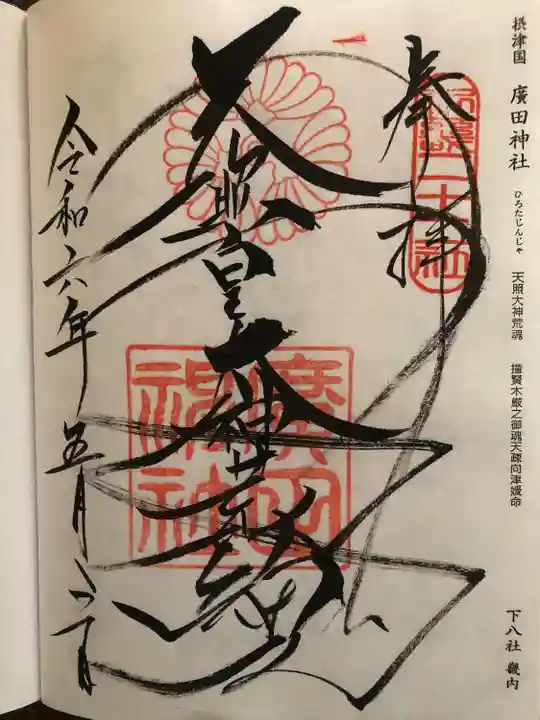 摂津国 廣田神社 ひろたじんじゃ 天照大神荒魂 撞賢木厳之御魂天疎向津媛命 下八社 畿内
奉拝
天照皇大神荒
廣田
神社
令和六年五月